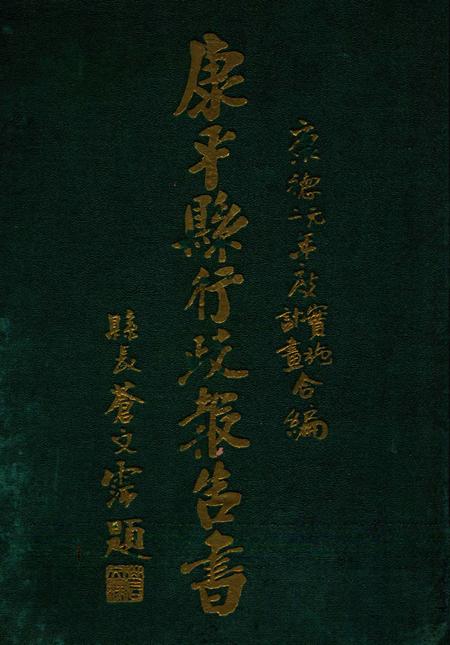 康德元二年度實施計畫合編
康平縣行政報告書
縣長蒼文題